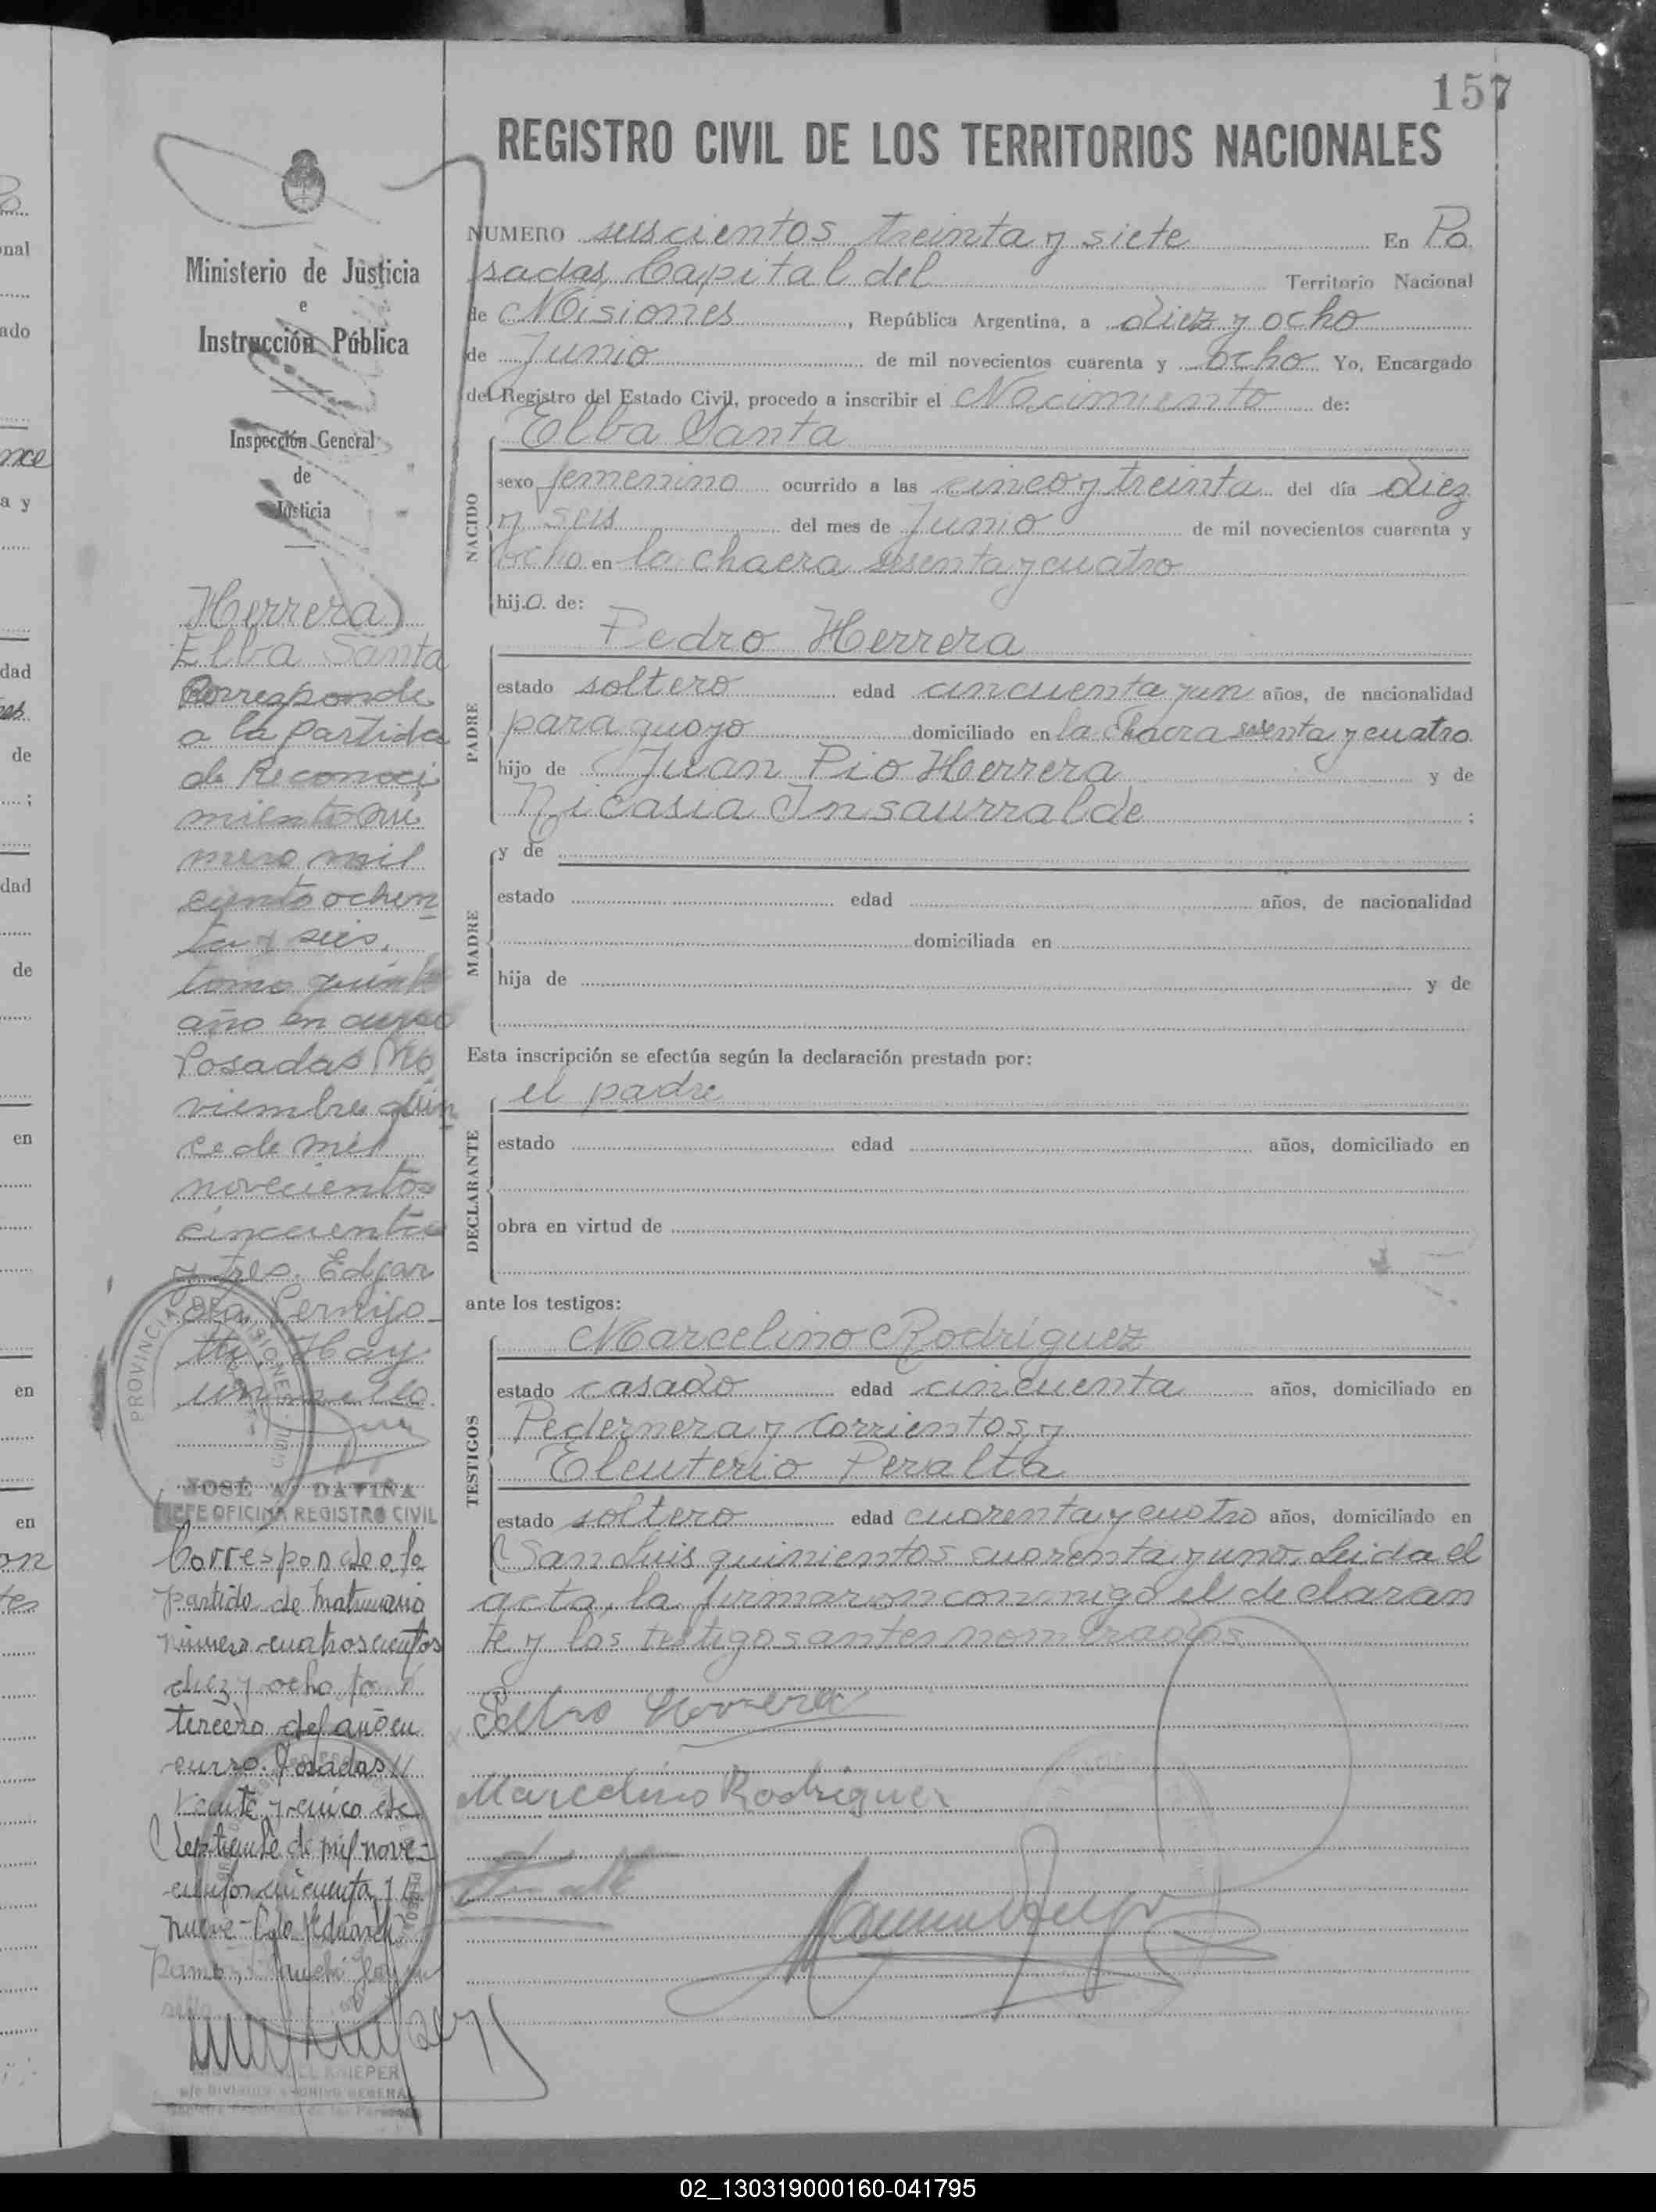 157
REGISTRO CIVIL DE LOS TERRITORIOS NACIONALES
NUMERO seiscientos treinta y siete En Po
sadas, Capital del Territorio Nacional
de Misiones, República Argentina, a diez y ocho
de Junio de mil novecientos cuarenta y ocho Yo, Encargado
del Registro del Estado Civil, procedo a inscribir el Nacimiento de:
Elba Santa
NACIDO
sexo femenino ocurrido a las cinco y treinta del día diez
y seis del mes de Junio de mil novecientos cuarenta y
ocho en la chacra sesenta y cuatro
hija de:
Pedro Herrera
PADRE
estado soltero edad cincuenta y un años, de nacionalidad
paraguayo domiciliado en la chacra sesenta y cuatro
hijo de Juan Pio Herrera y de
Nicasia Insaurralde ;
MADRE
y de
estado edad años, de nacionalidad
domiciliada en
hija de y de
Esta inscripción se efectúa según la declaración prestada por:
el padre
DECLARANTE
estado edad años, domiciliado en
obra en virtud de
ante los testigos:
Marcelino Rodríguez
TESTIGOS
estado casado edad cincuenta años, domiciliado en
Pedernera y Corrientos, y
Eleuterio Peralta
estado soltero edad cuarenta y cuatro años, domiciliado en
San Luis quinientos cuarenta y uno. Leida el
acta, la firmaron conmigo el declaran
te y los testigos antes nombrados
Pedro Herrera
Marcelino Rodriguez
Ministerio de Justicia
e
Instrucción Pública
Inspección General
de
Justicia
Herrera
Elba Santa
Corresponde
a la partida
de Reconoci
miento nú
mero mil
ciento ochen
ta y seis,
tomo quinto
año en curso
Posadas No
viembre quin
ce de mil
novecientos
cincuenta
y tres. Edgar
Hay
un sello.
PROVINCIA DE MISIONES
JOSÉ A. DAVIÑA
JEFE OFICINA REGISTRO CIVIL
Corresponde a la
partida de matrimonio
número cuatroscientos
diez y ocho, tomo
tercero del año en
curso. Posadas
veinte y cinco de
Septiembre de mil nove-
cientos cincuenta y
nueve-
Ramon
KNIEPER
02_130319000160-041795